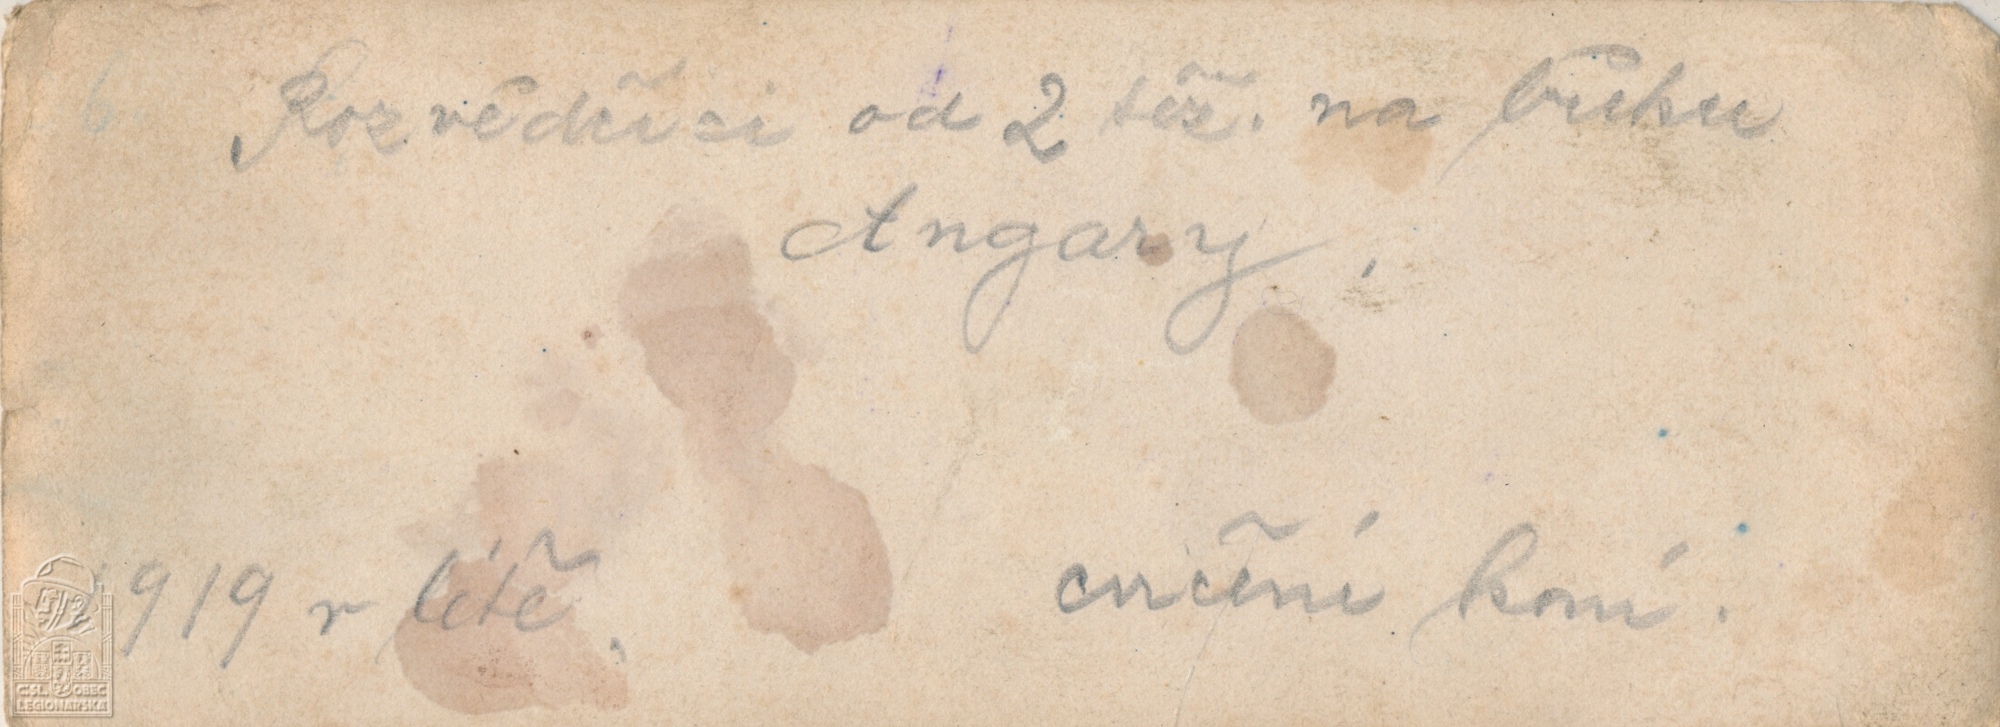 6.
Rozvědčíci od 2 těž. na břehu
Angary.
1919 v létě.
cvičění koní.
ČSL. OBEC
LEGIONÁŘSKÁ